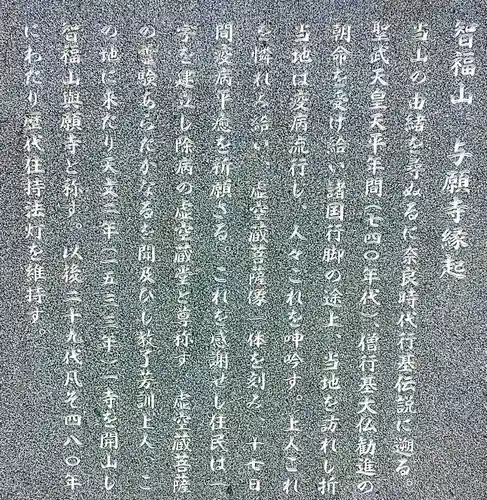 智福山　与願寺縁起
当山の由緒を尋ぬるに奈良時代行基伝説に遡る。
聖武天皇天平年間（七四〇年代）、僧行基大仏勧進の
朝命を受け給い諸国行脚の途上、当地を訪れし折
当地は疫病流行し、人々これを呻吟す。上人これ
を憐れみ給い、虚空蔵菩薩像一体を刻み、十七日
間疫病平癒を祈願さる。これを感謝せし住民は一
宇を建立し除病の虚空蔵堂と尊称す　虚空蔵菩薩
の霊験あらたかなるを聞及びし教了芳訓上人、こ
の地に来たり天文二年（一五三三年）一寺を開山し
智福山與願寺と称す。以後二十九代凡そ四八〇年
にわたり歴代住持法灯を維持す。